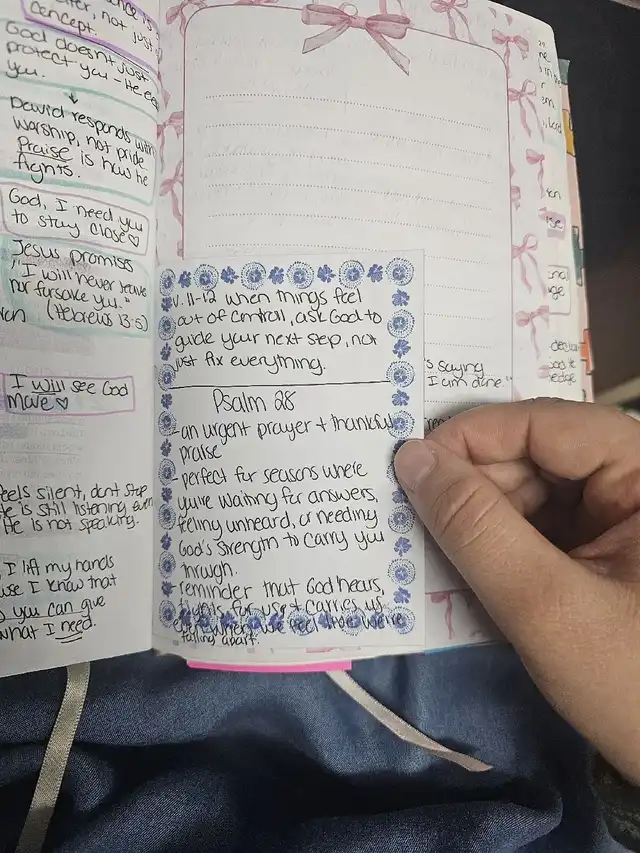 not just
concept.
God doesn't just
protect you - He
you.
↓
David responds with
worship, not pride
praise is how he
fights.
God, I need you
to stay close♡
Jesus promiss
"I will never leave
nor forsake you."
(Hebrews 13:5)
I will see God
move♡
feels silent, dont stop
He is still listening even
He is not speaking.
I lift my hands
I know that
you can give
what I need.
v. 11-12 when things feel
out of controll, ask God to
guide your next step, not
just fix everything.
Psalm 28
- an urgent prayer + thankful
praise
- perfect for seasons where
you're waiting for answers,
feeling unheard, or needing
God's strength to carry you
through.
- reminder that God hears,
fights for us + carries us
even when we feel like we're
falling apart.
's saying
I am done."